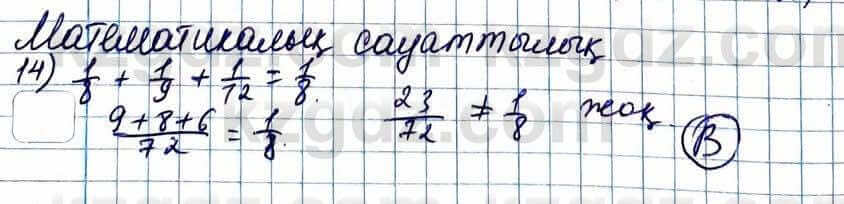 Математикалық сауаттылық
14) 1/8 + 1/9 + 1/12 = 1/8.
(9+8+6)/72 = 1/8. 23/72 ≠ 1/8 жоқ. B
kzgaz.com